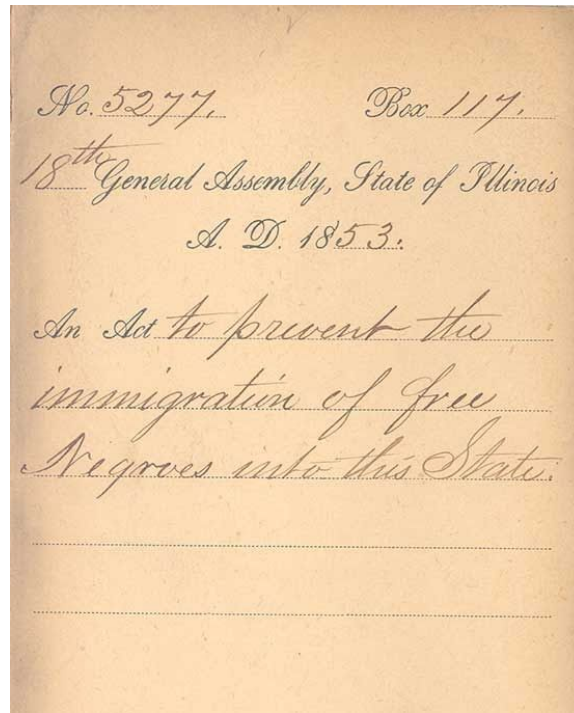 No. 5277. Box 117.
18th General Assembly, State of Illinois
A. D. 1853.
An Act to prevent the
immigration of free
Negroes into this State.